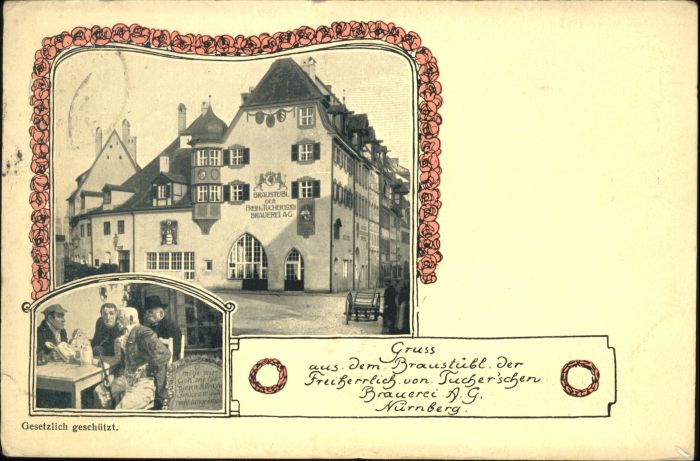 BRAUSTÜBL
DER
FREIH. v. TUCHER'SCHEN
BRAUEREI A.G
Gruss
aus dem Braustübl der
Freiherrlich von Tucher'schen
Brauerei A.G.
Nürnberg.
Gesetzlich geschützt.